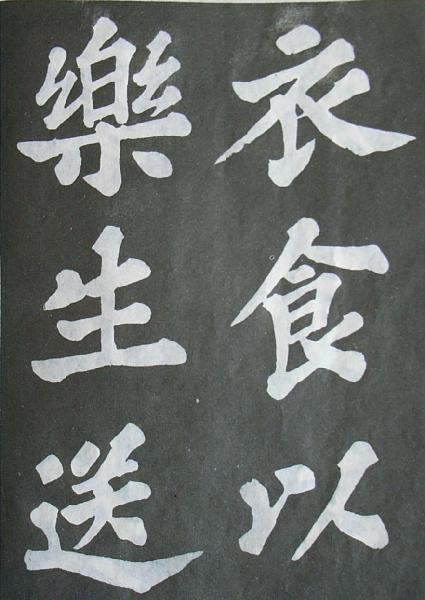 衣食以
樂生送